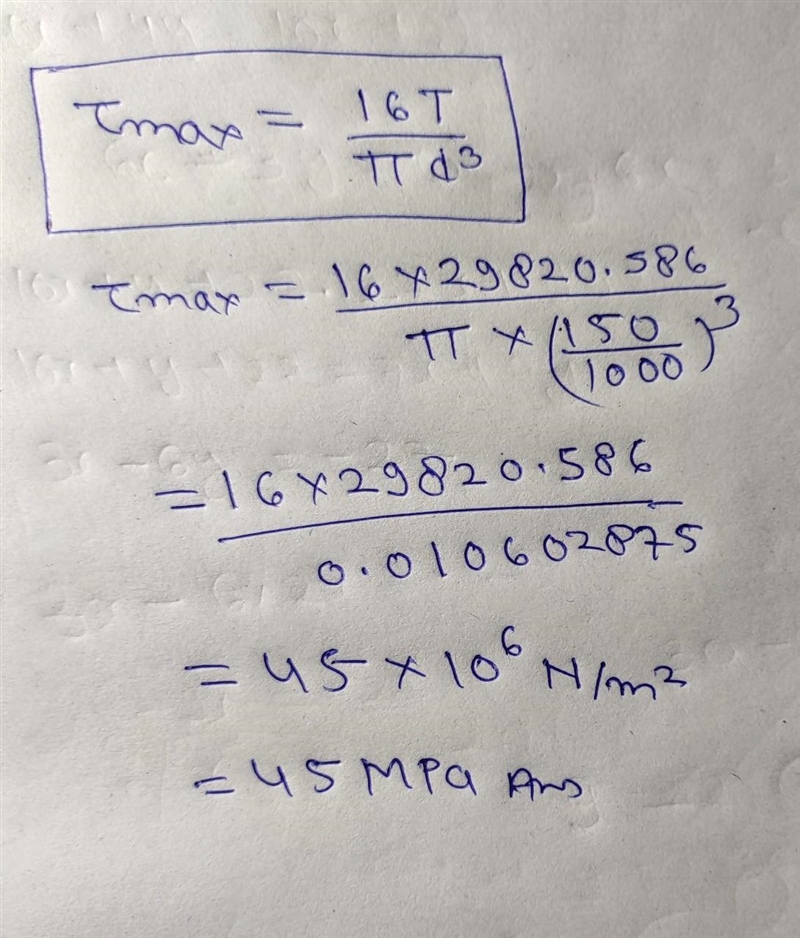 τmax = 16T / πd³
τmax = 16 × 29820.586 / π × (150/1000)³
= 16 × 29820.586 / 0.010602875
= 45 × 10⁶ N/m²
= 45 MPa Ans